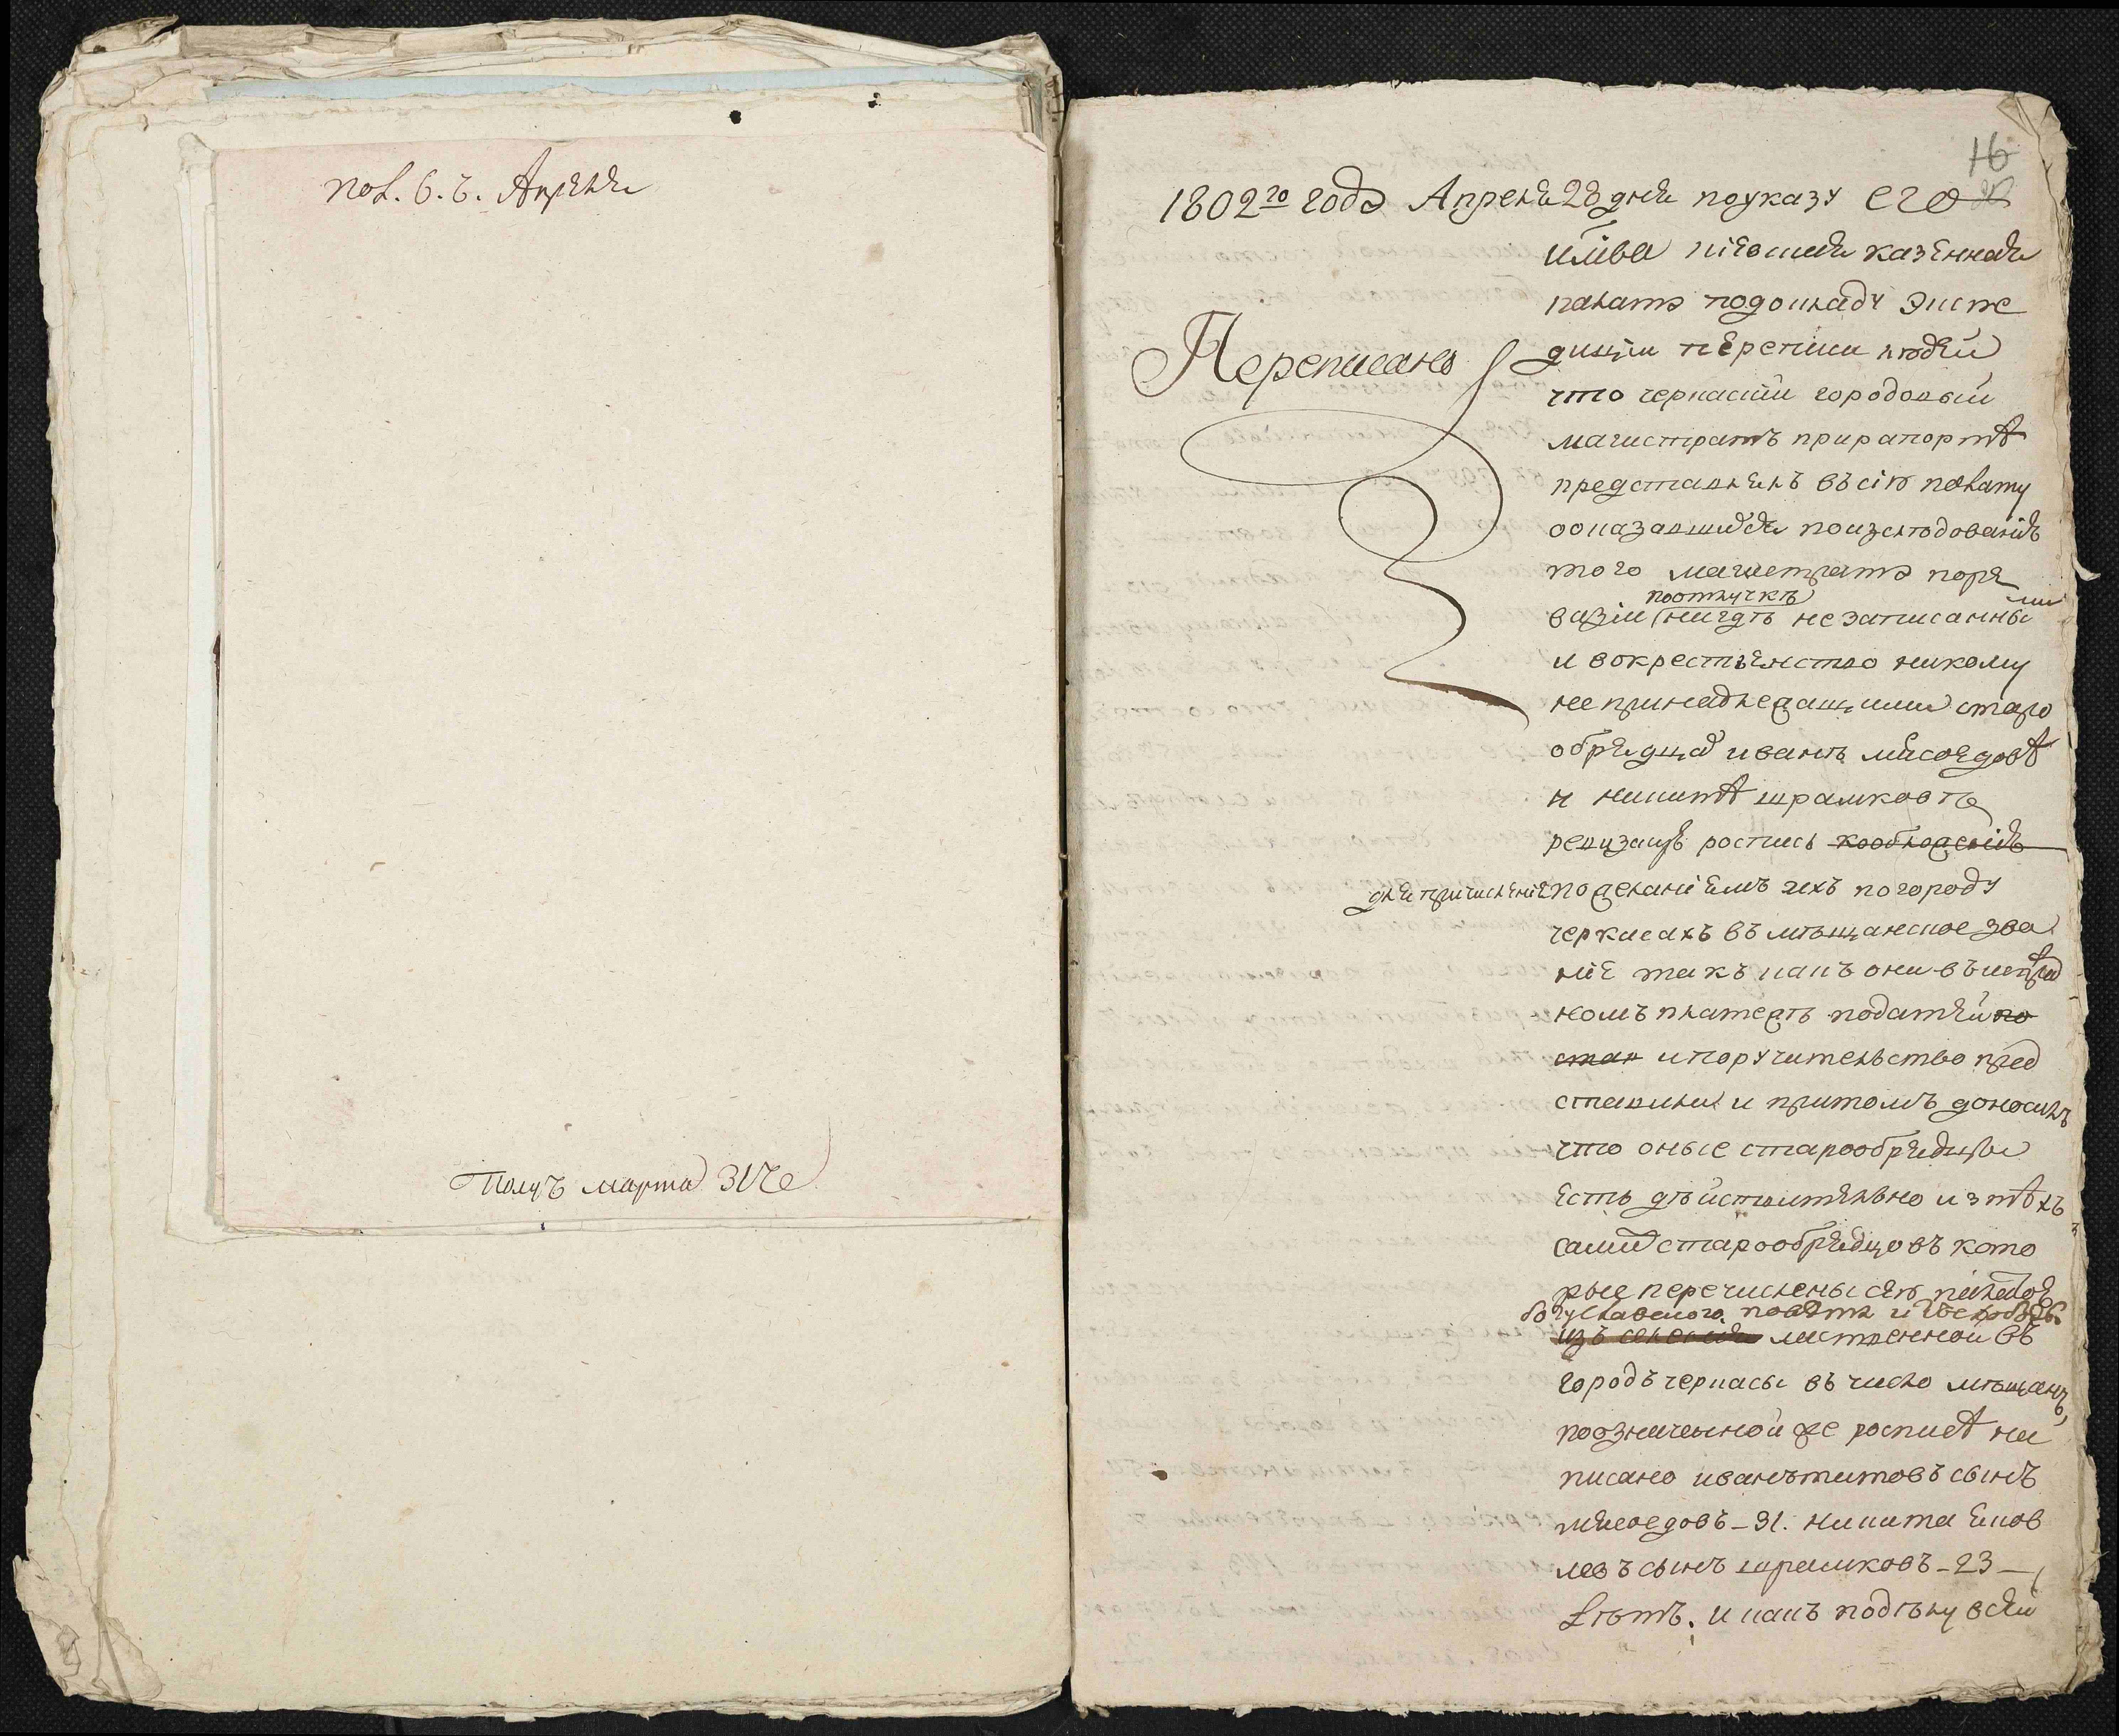 пол. 6.г. Апреля
Полуъ марта 31го
16
1802го года Апреля 28 дня по указу его
имва киевская казенная
палата по докладу экспе
диции переписи людей
Переписано
что черкаский городовый
магистратъ при рапортѣ
представилъ въ сію палату
о оказавшихся по изслѣдованію
того магистрата по ре
поотлучкѣ
визіи нигдѣ не записанны
ми
и в крестьянство никому
не принадлежащими старо
обрядца иванѣ мясоедовѣ
и никитѣ шрамковѣ
ревизскую роспись к обложенію
для причисленія по желаніемъ ихъ по городу
черкасахъ въ мѣщанское зва
ніе такъ какъ они въ исправ
номъ платежѣ податей по
став и поручительство пред
ставили и притомъ доноситъ
что оные старообрядцы
есть дѣйствительно изъ тѣхъ
самихъ старообрядцовъ кото
рые перечислены сею палатою
богуславского повѣта
изъ селенія местечной въ
городъ черкасы въ число мѣщанъ,
по означенной же росписѣ на
писано иванъ титовъ сынъ
мясоедовъ - 31. никита яков
левъ сынъ шрамковъ - 23 -
лѣтъ. и какъ по дѣлу всей